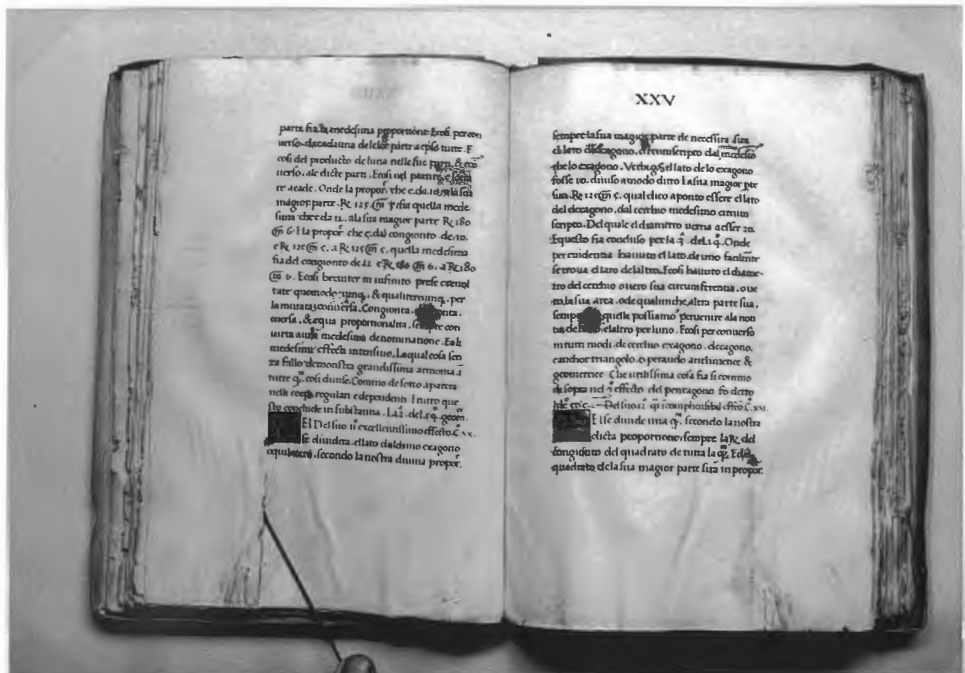 parte fia la medesima proportione. Ecosi per con
uerso. dacadauna dele lor parte a epso tutte. E
cosi del producto de luna nelle sue parti, &
uerso, ale dicte parti. Ecosi nel partire, e
re acade. Onde la propor. che e. da .10. ala sua
magior parte. R 125. m̃ 5. sia quella mede
sima che e da 12. ala sua magior parte R 180
m̃ 6. E la propor. che e. dal congionto de .10.
e R 125 m̃ 5. a R 125 m̃ 5. quella medesima
fia del congionto de 12 e R 180 m̃ 6. a R 180
m̃ 6. Ecosi breuiter in infinito prese e
tate quomodocunq3, & qualitercunq3. per
la Congionta.
euersa. & equa proportionalita. sempre con
uirra a medesima denominatione. E ali
medesimi effecti intensiue. La qual cosa sen
za fallo demonstra grandissima armonia
tutte q̃. cosi diuise. Commo de sotto aparera
neli corpi regulari e dependenti. In tutto que
sto conclude in substantia. La 2. del. 14. geom.
EL Del suo 11 excellentissimo effecto. C. XX.
se diuidera. el lato daldicto exagono
equilatero. secondo la nostra diuina propor.
XXV
sempre la sua magior parte de necessita sira
el lato circunscripto dal medesimo
che lo exagono. Verbi g. Sel lato de lo exagono
fosse 10. diuiso a modo ditto la sua magior pte
sira. R 125 m̃ 5. qual dico aponto essere el lato
del decagono, dal cerchio medesimo circun
scripto. Del quale el diametro uerria a esser 20.
Equesto fia concluso per la 3. del. 14. Onde
per euidentia hauuto el lato de uno facilmte
se troua el lato de laltro. Ecosi hauuto el diame-
tro del cerchio o uero sua circumferentia. o ue
ro la sua area. o de qualunche altra parte sua,
sempre quelle possiamo peruenire ale noti
tia del el altro per luno. Ecosi per conuerso
in tutti modi. de cerchio exagono. decagono.
e anchor triangolo. operando arithmetice &
geometrice Che utilissima cosa fia si commo
de sopra nel 9 effecto del pentagono fo detto
Del suo 12. q̃i incomphesibil effcō. C. XXI.
E se diuide una q̃. secondo la nostra
dicta proportione. sempre la R del
congionto del quadrato de tutta la q̃. E del
quadrato de la sua magior parte sira in propor.